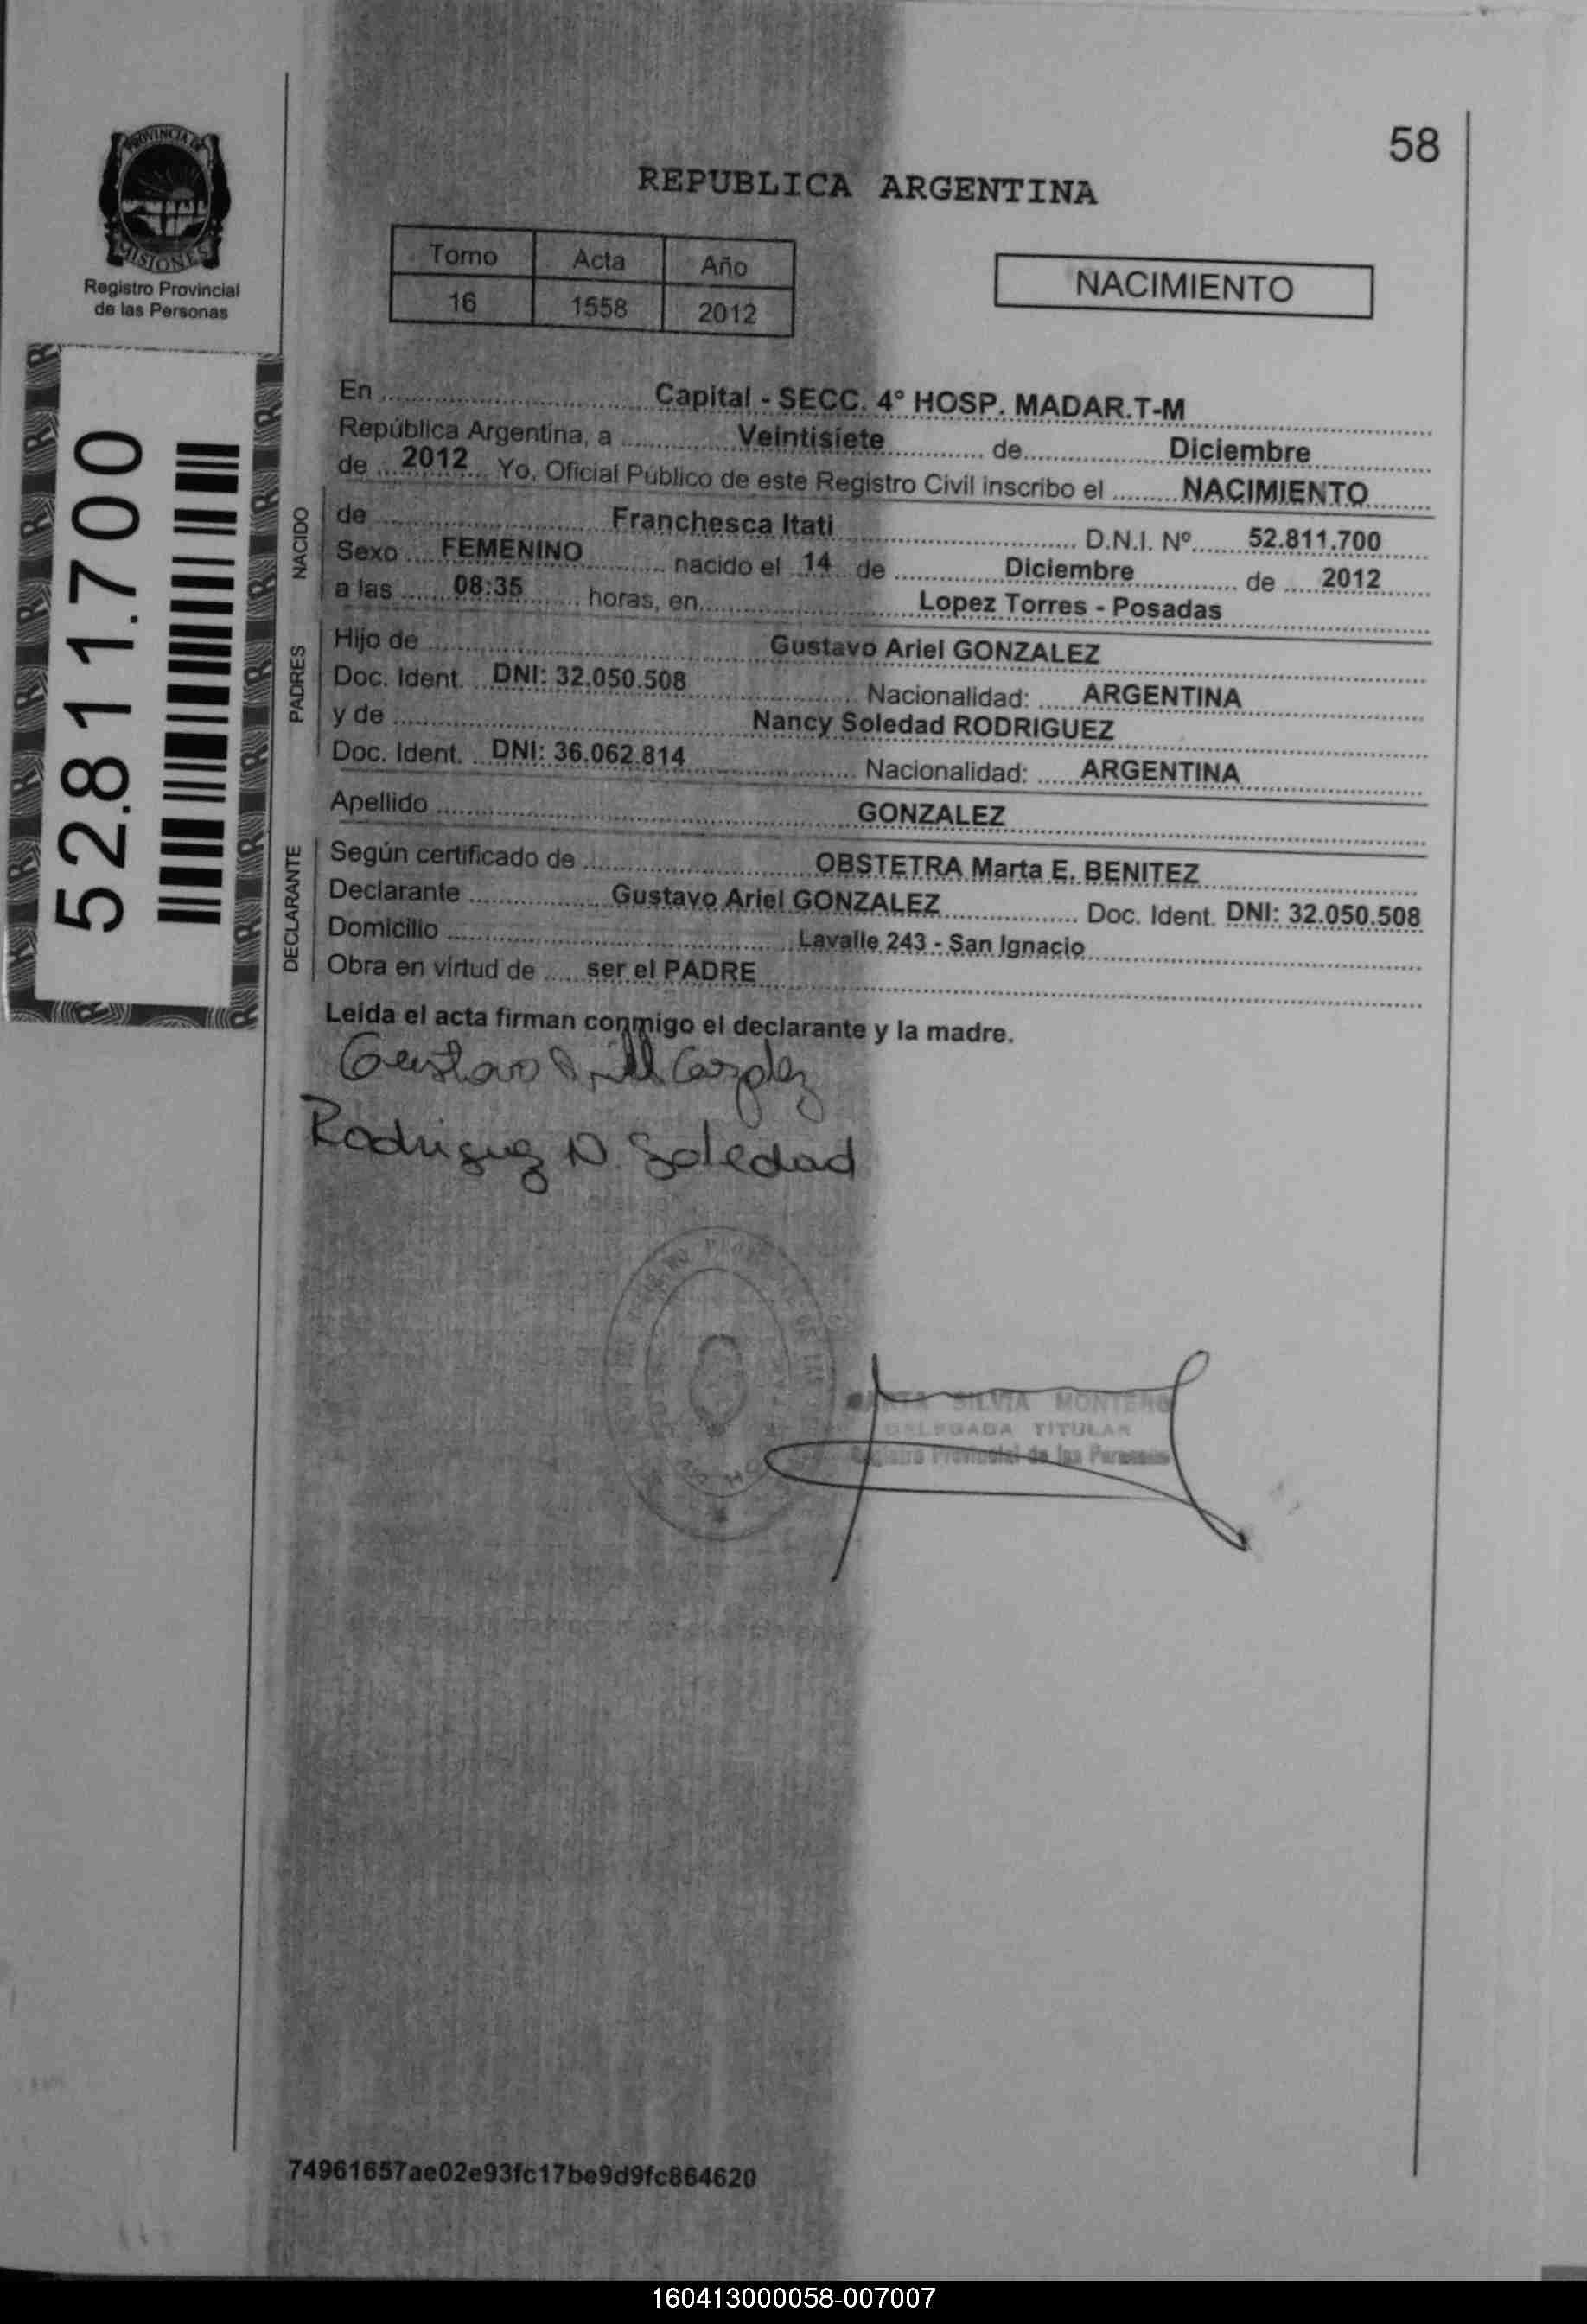 58
PROVINCIA DE
MISIONES
Registro Provincial
de las Personas
REPUBLICA ARGENTINA
Tomo Acta Año
16 1558 2012
NACIMIENTO
52.811.700
En Capital - SECC. 4° HOSP. MADAR.T-M
República Argentina, a Veintisiete de Diciembre
de 2012 Yo, Oficial Público de este Registro Civil inscribo el NACIMIENTO
NACIDO
de Franchesca Itati D.N.I. Nº 52.811.700
Sexo FEMENINO nacido el 14 de Diciembre de 2012
a las 08:35 horas, en Lopez Torres - Posadas
PADRES
Hijo de Gustavo Ariel GONZALEZ
Doc. Ident. DNI: 32.050.508 Nacionalidad: ARGENTINA
y de Nancy Soledad RODRIGUEZ
Doc. Ident. DNI: 36.062.814 Nacionalidad: ARGENTINA
Apellido GONZALEZ
DECLARANTE
Según certificado de OBSTETRA Marta E. BENITEZ
Declarante Gustavo Ariel GONZALEZ Doc. Ident. DNI: 32.050.508
Domicilio Lavalle 243 - San Ignacio
Obra en virtud de ser el PADRE
Leida el acta firman conmigo el declarante y la madre.
Gustavo
Rodriguez N. Soledad
SILVIA MONTERO
DELEGADA TITULAR
Registro Provincial de las Personas
74961657ae02e93fc17be9d9fc864620
160413000058-007007